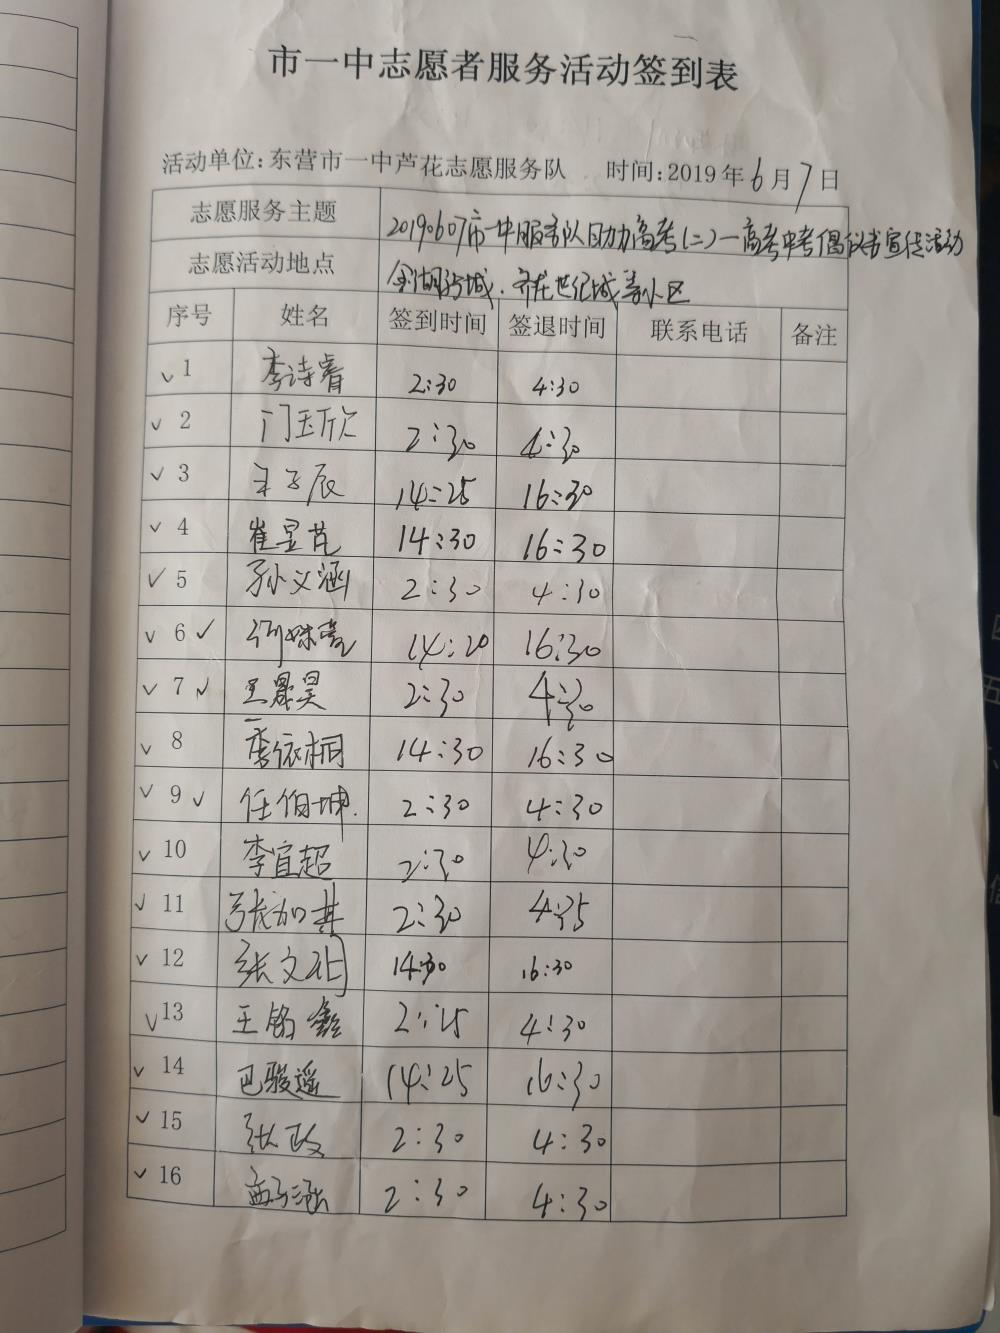 市一中志愿者服务活动签到表
活动单位:东营市一中芦花志愿服务队 时间:2019年6月7日
志愿服务主题 20190607市一中服务队助力高考(二)—高考中考倡议书宣传活动
志愿活动地点 金湖 城、 世纪城等小区
序号 姓名 签到时间 签退时间 联系电话 备注
✓ 1 李诗睿 2:30 4:30
✓ 2 门玉欣 2:30 4:30
✓ 3 子辰 14:25 16:30
✓ 4 崔昱芃 14:30 16:30
✓ 5 孙义涵 2:30 4:30
✓ 6 ✓ 14:20 16:30
✓ 7 ✓ 王晟昊 2:30 4:30
✓ 8 李依桐 14:30 16:30
✓ 9 ✓ 任伯坤 2:30 4:30
✓ 10 李宜超 2:30 4:30
✓ 11 张加其 2:30 4:35
✓ 12 张文 14:30 16:30
✓ 13 王铭鑫 2:25 4:30
✓ 14 巴骏遥 14:25 16:30
✓ 15 张政 2:30 4:30
✓ 16 2:30 4:30